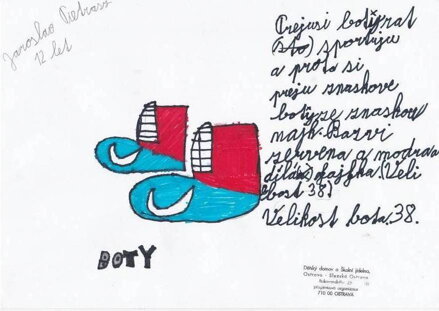 Jaroslav Pietrasz
12 let
Prejusi boty
(sto) sportuju
a proto si
preju znaskove
boty ze znaskove
najk. Barvi
zervena a modra
fajfka (Veli
kost 38)
Velikost bota. 38.
BOTY
Dětský domov a Školní jídelna,
Ostrava - Slezská Ostrava
příspěvková organizace
710 00 OSTRAVA